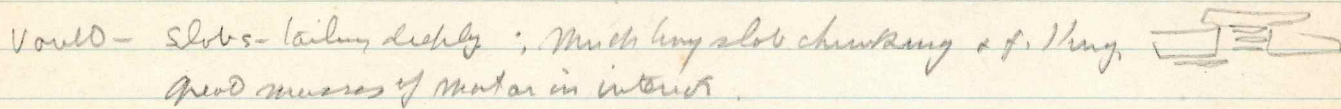 Vault - slabs - tailing deeply; Much tiny slab chunking & f.
great masses of mortar in interior.